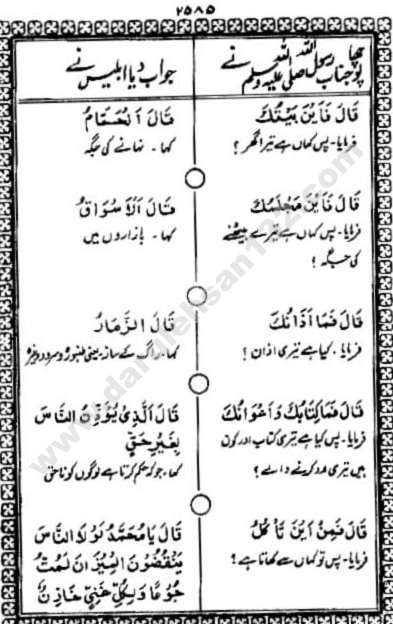 ۲۵۸۵
پوچھا جناب رسول اللہ صلی اللہ علیہ وسلم نے
جواب دیا ابلیس نے
قَالَ فَاَيْنَ بَيْتُكَ
فرمایا۔ پس کہاں ہے تیرا گھر؟
قَالَ اَلْحَمَّامُ
کہا۔ نہانے کی جگہ
قَالَ فَاَيْنَ مَجْلِسُكَ
فرمایا۔ پس کہاں ہے تیرے بیٹھنے
کی جگہ؟
قَالَ اَلْاَسْوَاقُ
کہا۔ بازاروں میں
قَالَ فَمَا اَذَانُكَ
فرمایا۔ کیا ہے تیری اذان؟
قَالَ الزَّمَارُ
کہا۔ راگ کے ساز یعنی طنبور و سرود وغیرہ
قَالَ فَمَا كِتَابُكَ وَاَعْوَانُكَ
فرمایا۔ پس کیا ہے تیری کتاب اور کون
ہیں تیری مدد کرنے والے؟
قَالَ الَّذِىْ يُؤْذِى النَّاسَ
بِغَيْرِ حَقٍّ
کہا۔ جو کہ حکم کرتا ہے لوگوں کو ناحق
قَالَ فَمِنْ اَيْنَ تَأْكُلُ
فرمایا۔ پس تو کہاں سے کھاتا ہے؟
قَالَ يَا مُحَمَّدُ لَوْلَا النَّاسُ
يَنْقُصُوْنَ الْمِيْزَانَ لَمُتُّ
جُوْعًا وَلِكُلِّ خَازِنٌ
www.darulehsan122.com